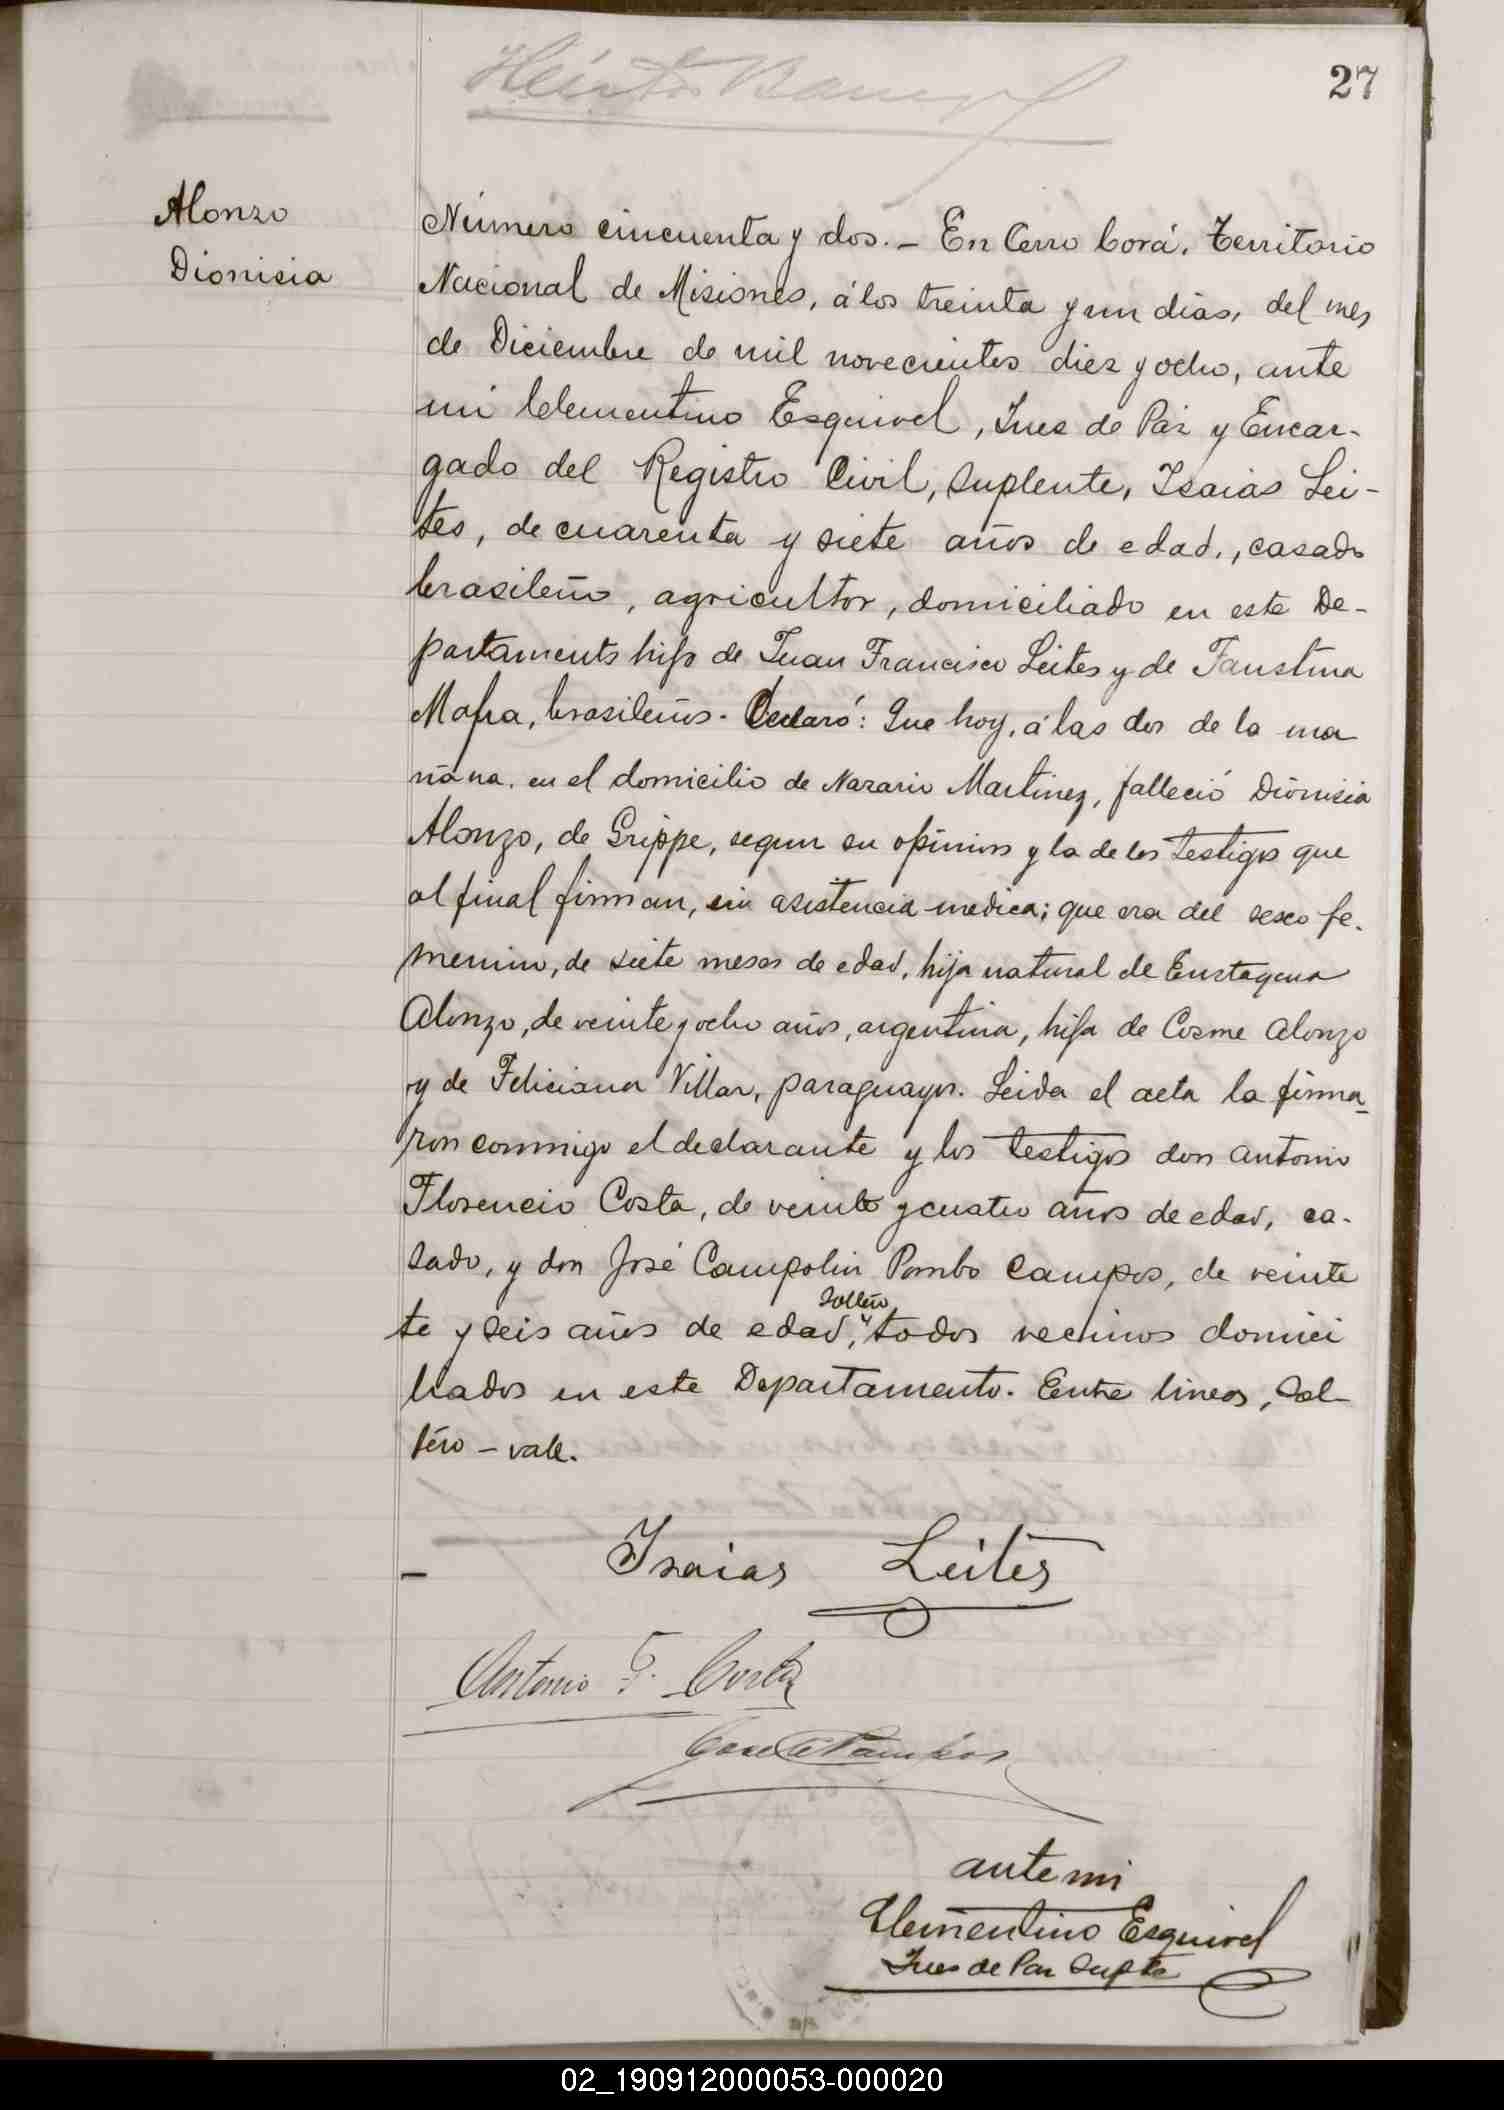 27
Alonzo
Dionisia
Número cincuenta y dos. - En Cerro Corá, Territorio
Nacional de Misiones, á los treinta y un dias, del mes
de Diciembre de mil novecientos diez y ocho, ante
mi Clementino Esquivel, Juez de Paz y Encar-
gado del Registro Civil, Suplente, Isaias Lei-
tes, de cuarenta y siete años de edad, casado
brasileño, agricultor, domiciliado en este De-
partamento hijo de Juan Francisco Leites y de Faustina
Mafra, brasileños. Declaró: Que hoy, á las dos de la ma
ñana, en el domicilio de Nazario Martinez, falleció Dionisia
Alonzo, de Grippe, segun su opinion y la de los testigos que
al final firman, sin asistencia medica; que era del sexo fe-
menino, de siete meses de edad, hija natural de
Alonzo, de veinte y ocho años, argentina, hija de Cosme Alonzo
y de Feliciana Villar, paraguayos. Leida el acta la firma-
ron conmigo el declarante y los testigos don Antonio
Florencio Costa, de veinte y cuatro años de edad, ca-
sado, y don José Campolin Pombo Campos, de veinte
te y seis años de edad, soltero y todos vecinos domici
liados en este Departamento. Entre lineas, Sol-
tero - vale.
Isaias Leites
Antonio F. Costa
Jose C P Campos
ante mi
Clementino Esquivel
Juez de Paz Supte
02_190912000053-000020